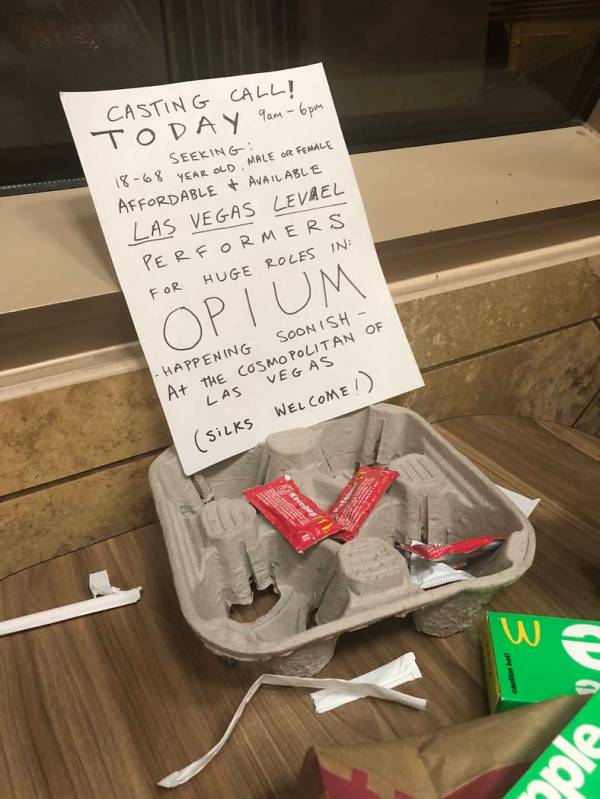 CASTING CALL!
TODAY 9am - 6pm
SEEKING:
18-68 YEAR OLD, MALE OR FEMALE
AFFORDABLE & AVAILABLE
LAS VEGAS LEVAEL
PERFORMERS
FOR HUGE ROLES IN:
OPIUM
- HAPPENING SOONISH -
At THE COSMOPOLITAN OF
LAS VEGAS
(SILKS WELCOME!)
Ketchup
caution hot!